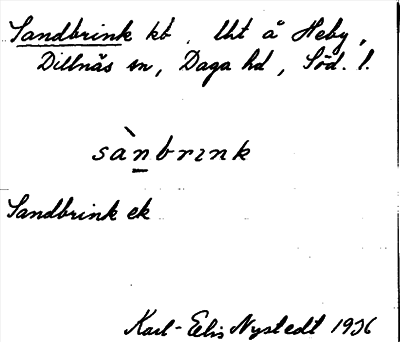 Sandbrink kb. lht å Heby,
Dillnäs sn, Daga hd, Söd. l.
sànbrɪnk
Sandbrink ek
Karl-Eelis Nystedt 1936